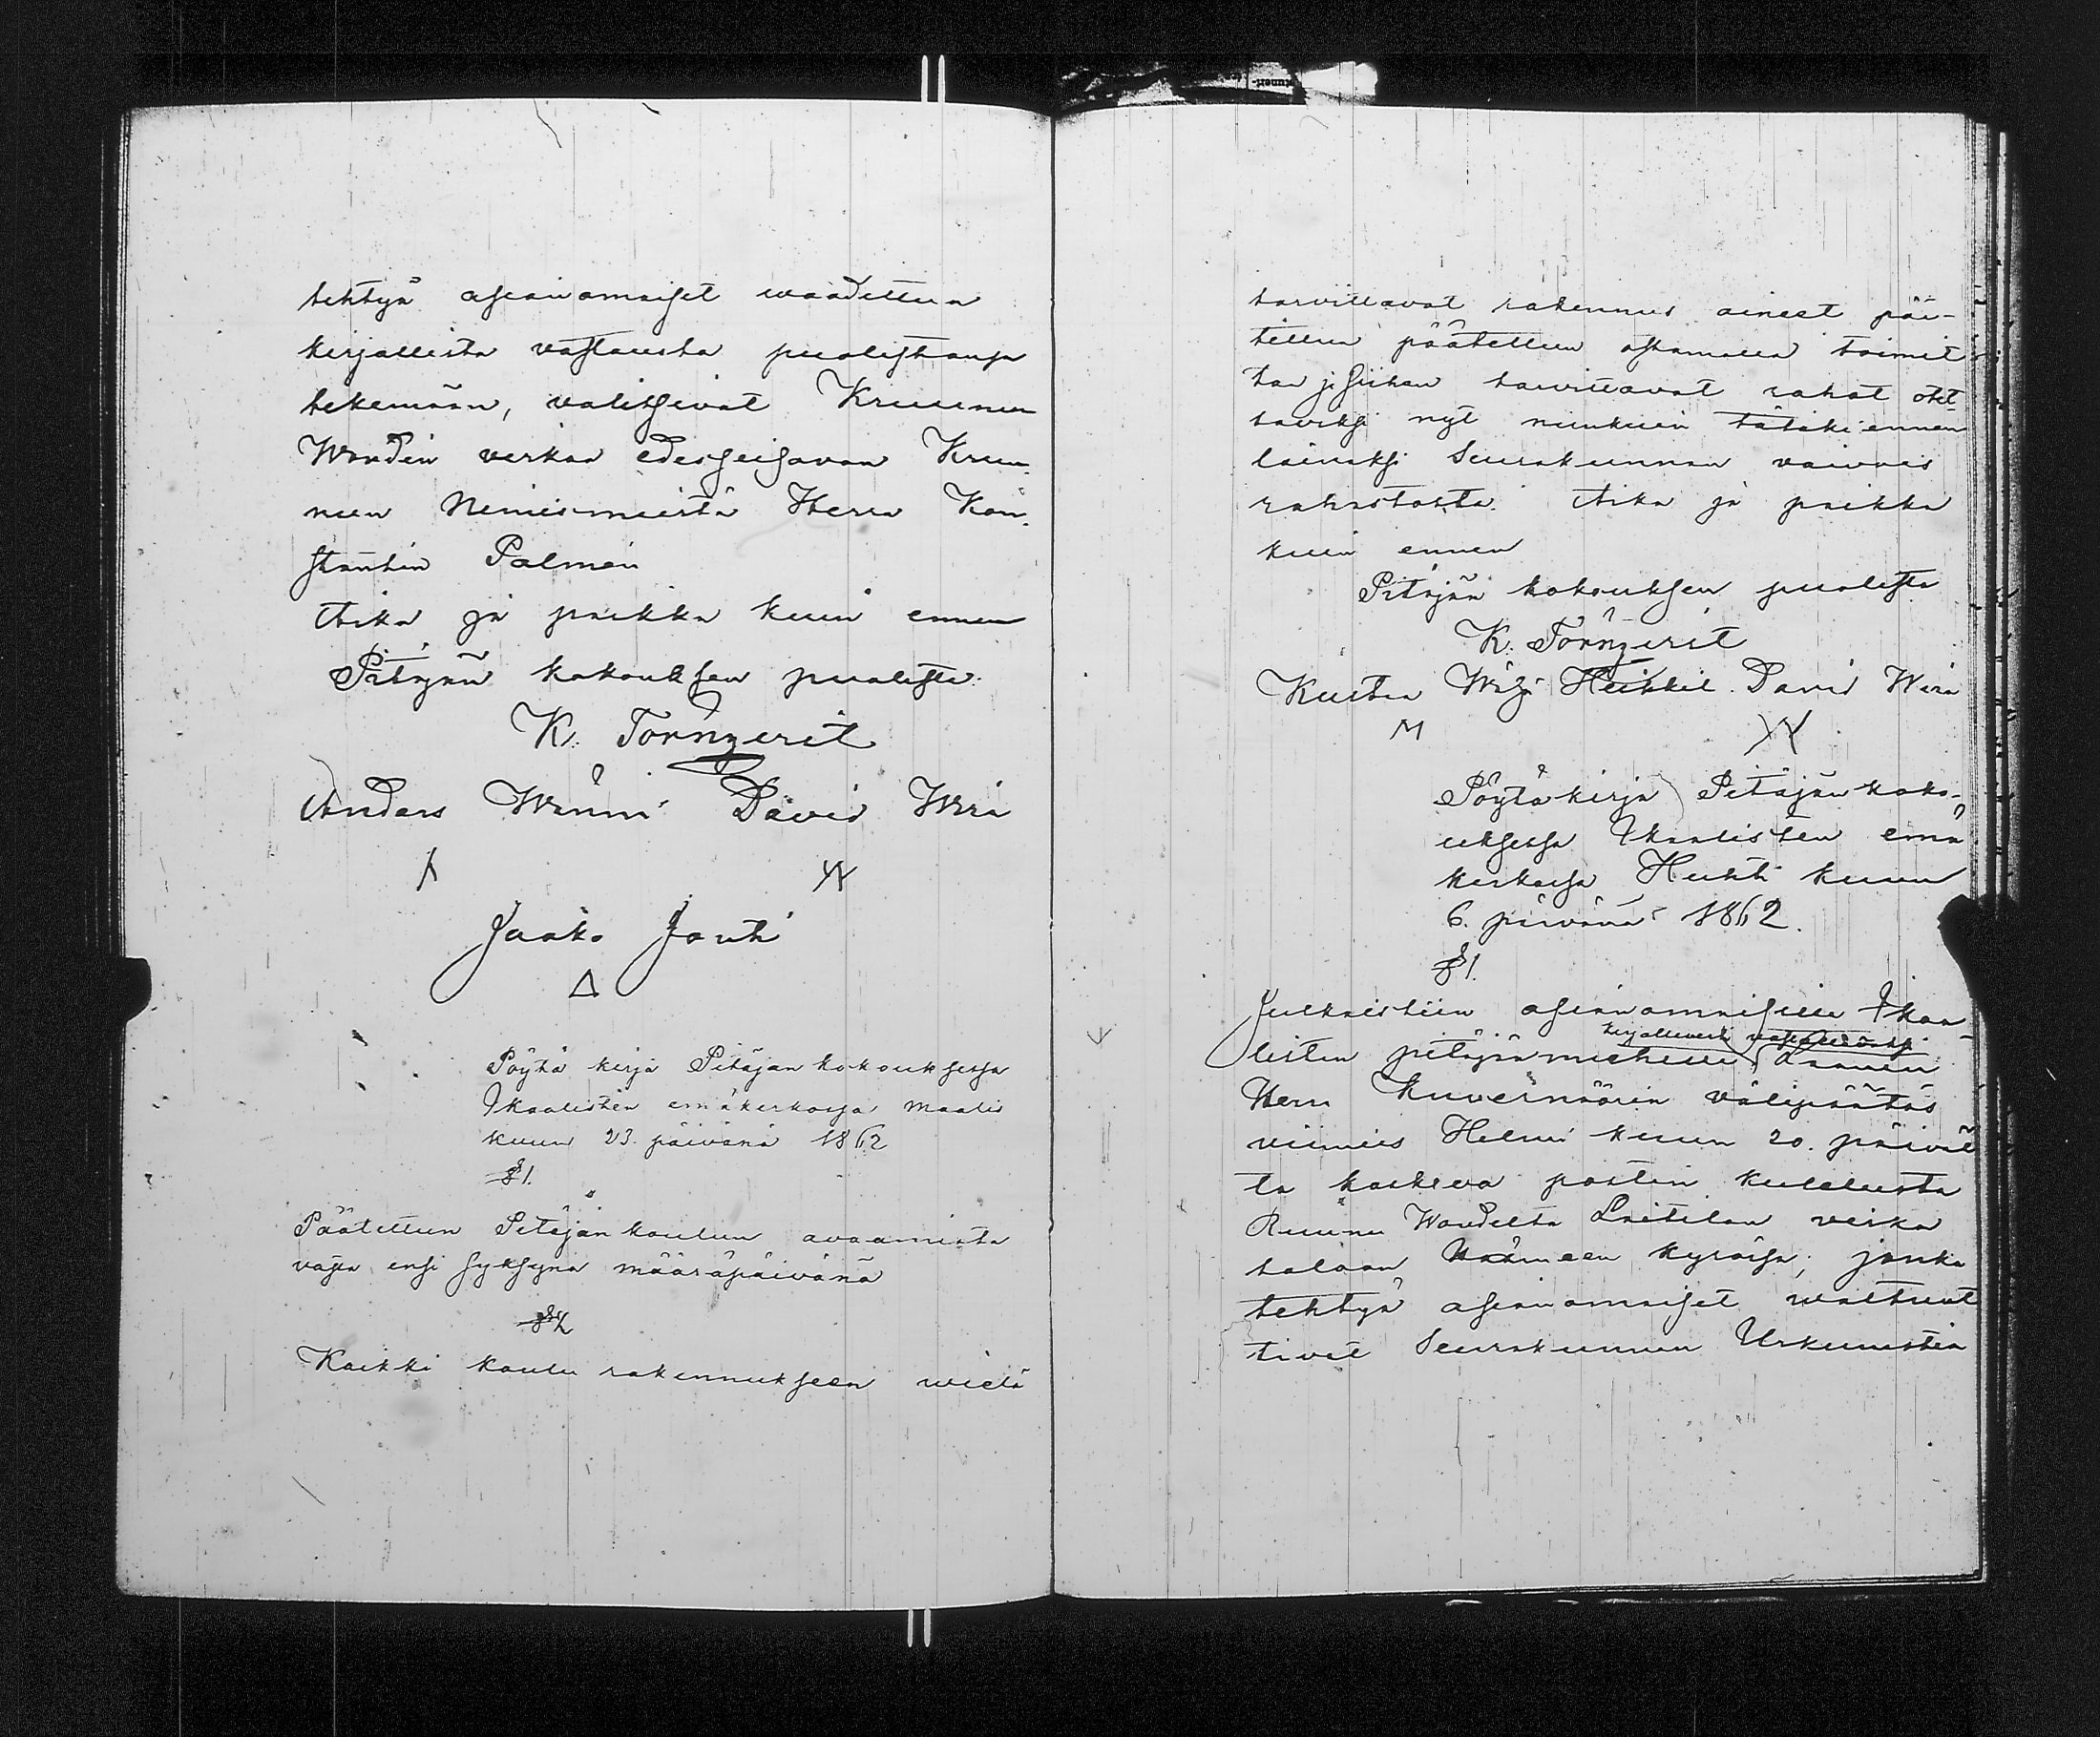 tehtyä asianomaiset waadittua
kirjallista vastausta puolistansa
tekemään, valitsivat Kruunun
Woudin virkaa edesseisovan Kruu-
nun Nimismiestä Herra Kon-
stantin Palmén
Aika ja paikka kuin ennen
Pitäjän kokouksen puolesta:
K. Törnqvist
Anders Wänni David Wira
Jaako Jouti
Pöytä kirja Pitäjän kokouksessa
Ikaalisten emäkirkossa Maalis
kuun 23. päivänä 1862
§ 1.
Päätettiin Pitäjän koulun avaamista
ensi syksynä määräpäivänä
§ 2
Kaikki koulu rakennukseen wielä
tarvittavat rakennus aineet
päätettiin ostamalla toimit
taa ja siihen tarvittavat rahat otet-
taviksi nyt niinkuin tätäki ennen
lainaksi Seurakunnan vaivais
rahastosta. Aika ja paikka
kuin ennen
Pitäjän kokouksen puolesta
K. Törnqvist
Kustaa Heikkil. David Wira
M
Pöytäkirja Pitäjän koko-
uksessa Ikaalisten emä
kirkossa Huhti kuun
6. päivänä 1862.
§ 1.
Julkaistiin asianomaisille Ikaa-
kirjallisesti
listen pitäjän miehille Läänin
Herra Kuvernöörin välipäätös
viimeis Helmi kuun 20. päiväl
tä koskeva postin kulelusta
Ruunu Woudelta Laitilan virka
taloon Hämeen kyrössä; jonka
tehtyä asianomaiset waltuut
tivat Seurakunnan Urkunistin